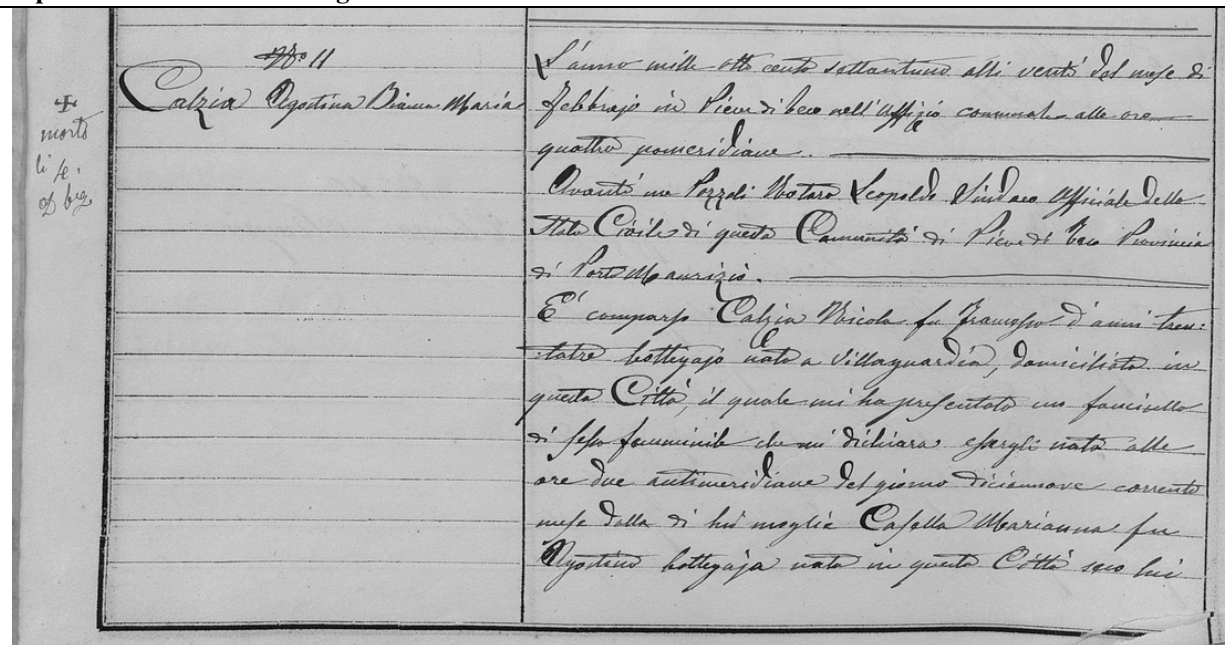 No 11
Calzia Agostina Bianca Maria
morto
li
L'anno mille otto cento settantuno alli venti del mese di
Febbrajo in Pieve di Teco nell'Uffizio comunale alle ore
quattro pomeridiane.
Avanti me Pozzoli Notaro Leopoldo Sindaco Officiale dello
Stato Civile di questa Comunità di Pieve di Teco Provincia
di Porto Maurizio.
E' comparso Calzia Nicola fu Francesco d'anni tren=
=tatre bottegajo nato a Villaguardia, domiciliato in
questa Città, il quale mi ha presentato un fanciullo
di sesso femminile che mi dichiara essergli nato alle
ore due antimeridiane del giorno diciannove corrente
mese dalla di lui moglie Casella Marianna fu
Agostino bottegaja nata in questa Città seco lui